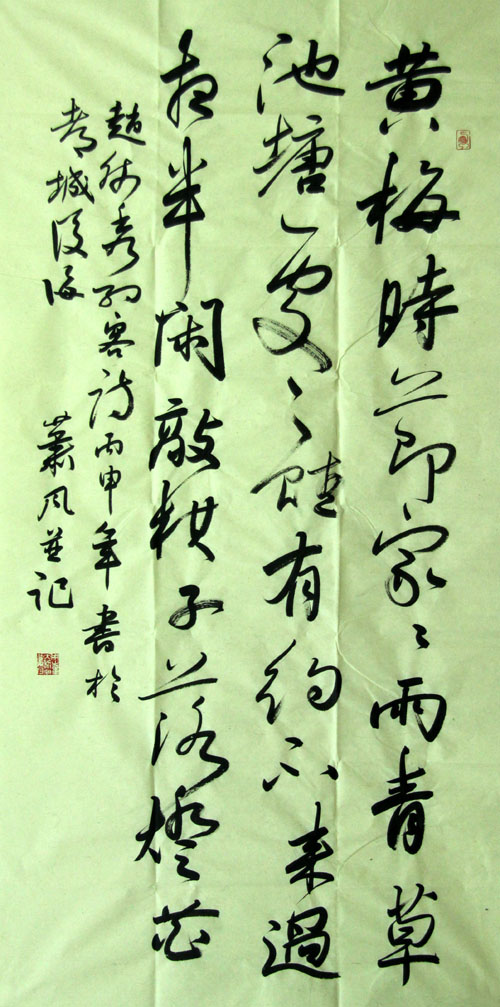 黄梅時節家〻雨青草
池塘處〻蛙有約不来過
夜半閑敲棋子落燈花
趙師秀約客詩丙申年書於
蕭風並记